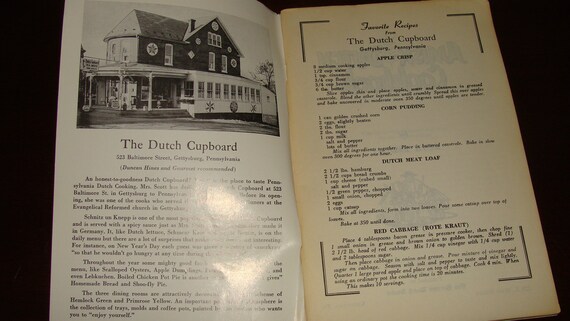 The Dutch Cupboard
523 Baltimore Street, Gettysburg, Pennsylvania
(Duncan Hines and Gourmet recommended)
An honest-to-goodness Dutch Cupboard! place to taste Penn-
sylvania Dutch Cooking. Mrs. Scott Cupboard at 523
Baltimore St. in Gettysburg its open-
ing, she was one of the cooks who dinners at the
Evangelical Reformed church in Gettysburg.
Schnitz un Knepp is one of the most Cupboard
and is served with a spicy sauce just as made it
in Germany. It, like Dutch lettuce, Schmier Kase is on the daily
menu but there are a lot of surprises that interesting
For instance, on New Year's Day each guest was given
"so that he wouldn't go hungry at any time during
Throughout the year some mighty good on
the menu; like Scalloped Oysters, Apple Dum
and even Lebkuchen. Boiled Chicken Pot Pie is another gives"
Homemade Bread and Shoo-fly Pie.
The three dining rooms are attractively scheme of
Hemlock Green and Primrose Yellow. An important here
is the collection of trays, molds and coffee pots, painted who wants
you to "enjoy yourself."
Favorite Recipes
from
The Dutch Cupboard
Gettysburg, Pennsylvania
APPLE CRISP
8 medium cooking apples
1/2 cup water
1 tsp. cinnamon
3/4 cup flour
3/4 cup brown sugar
6 tbs. butter
Slice apples thin and place apples, water and cinnamon in greased
casserole. Blend the other ingredients until crumbly. Spread this over apples
and bake uncovered in moderate oven 350 degrees until apples are tender.
CORN PUDDING
1 can golden crushed corn
2 eggs, slightly beaten
2 tbs. flour
2 tbs. sugar
1 cup milk
salt and pepper
lots of butter
Mix all ingredients together. Place in buttered casserole. Bake in slow
oven 300 degrees for one hour.
DUTCH MEAT LOAF
2 1/2 lbs. hamburg
2 1/2 cups bread crumbs
1 cup cheese (cubed small)
salt and pepper
1/2 green pepper, chopped
1 small onion, chopped
2 eggs
1 cup catsup
Mix all ingredients, form into two loaves. Pour some catsup over top of
loaves.
Bake at 350 until done.
RED CABBAGE (ROTE KRAUT)
Place 4 tablespoons bacon grease in pressure cooker, then chop fine
1 small onion in grease and brown onion to golden brown. Shred (2)
1/2 head of red cabbage. Mix 1/4 cup vinegar with 1/4 cup water
and 2 tablespoons sugar.
Then place cabbage in onion and grease. Pour mixture of vinegar and
sugar on cabbage. Season with salt and pepper to taste and mix lightly.
Quarter 1 large pared apple and place on top of cabbage. Cook 4 min. When
using an ordinary pot the cooking time is 20 minutes.
This makes 10 servings.